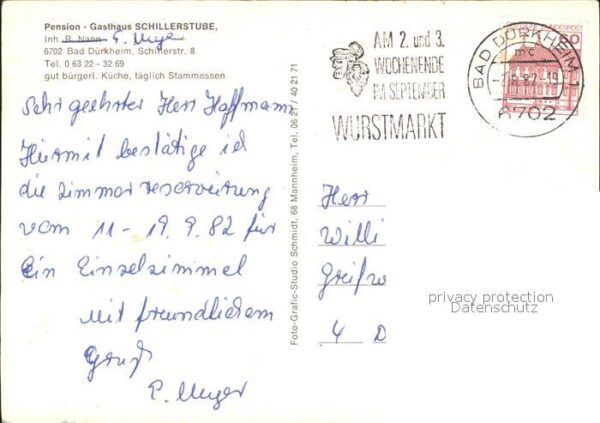 Pension - Gasthaus SCHILLERSTUBE,
Inh. R. Nann E. Meyer
6702 Bad Dürkheim, Schillerstr. 8
Tel. 0 63 22 - 32 69
gut bürgerl. Küche, täglich Stammessen
Sehr geehrter Herr Hoffmann
Hiermit bestätige ich
die Zimmerreservierung
vom 11 - 19. 9. 82 für
ein Einzelzimmer
Mit freundlichem
Gruß
E. Meyer
Foto-Grafic-Studio Schmidt, 68 Mannheim, Tel. 06 21 / 40 21 71
AM 2. und 3.
WOCHENENDE
IM SEPTEMBER
WURSTMARKT
BAD DÜRKHEIM 1
6702
Herr
Willi
Greifzu
4 D
privacy protection
Datenschutz